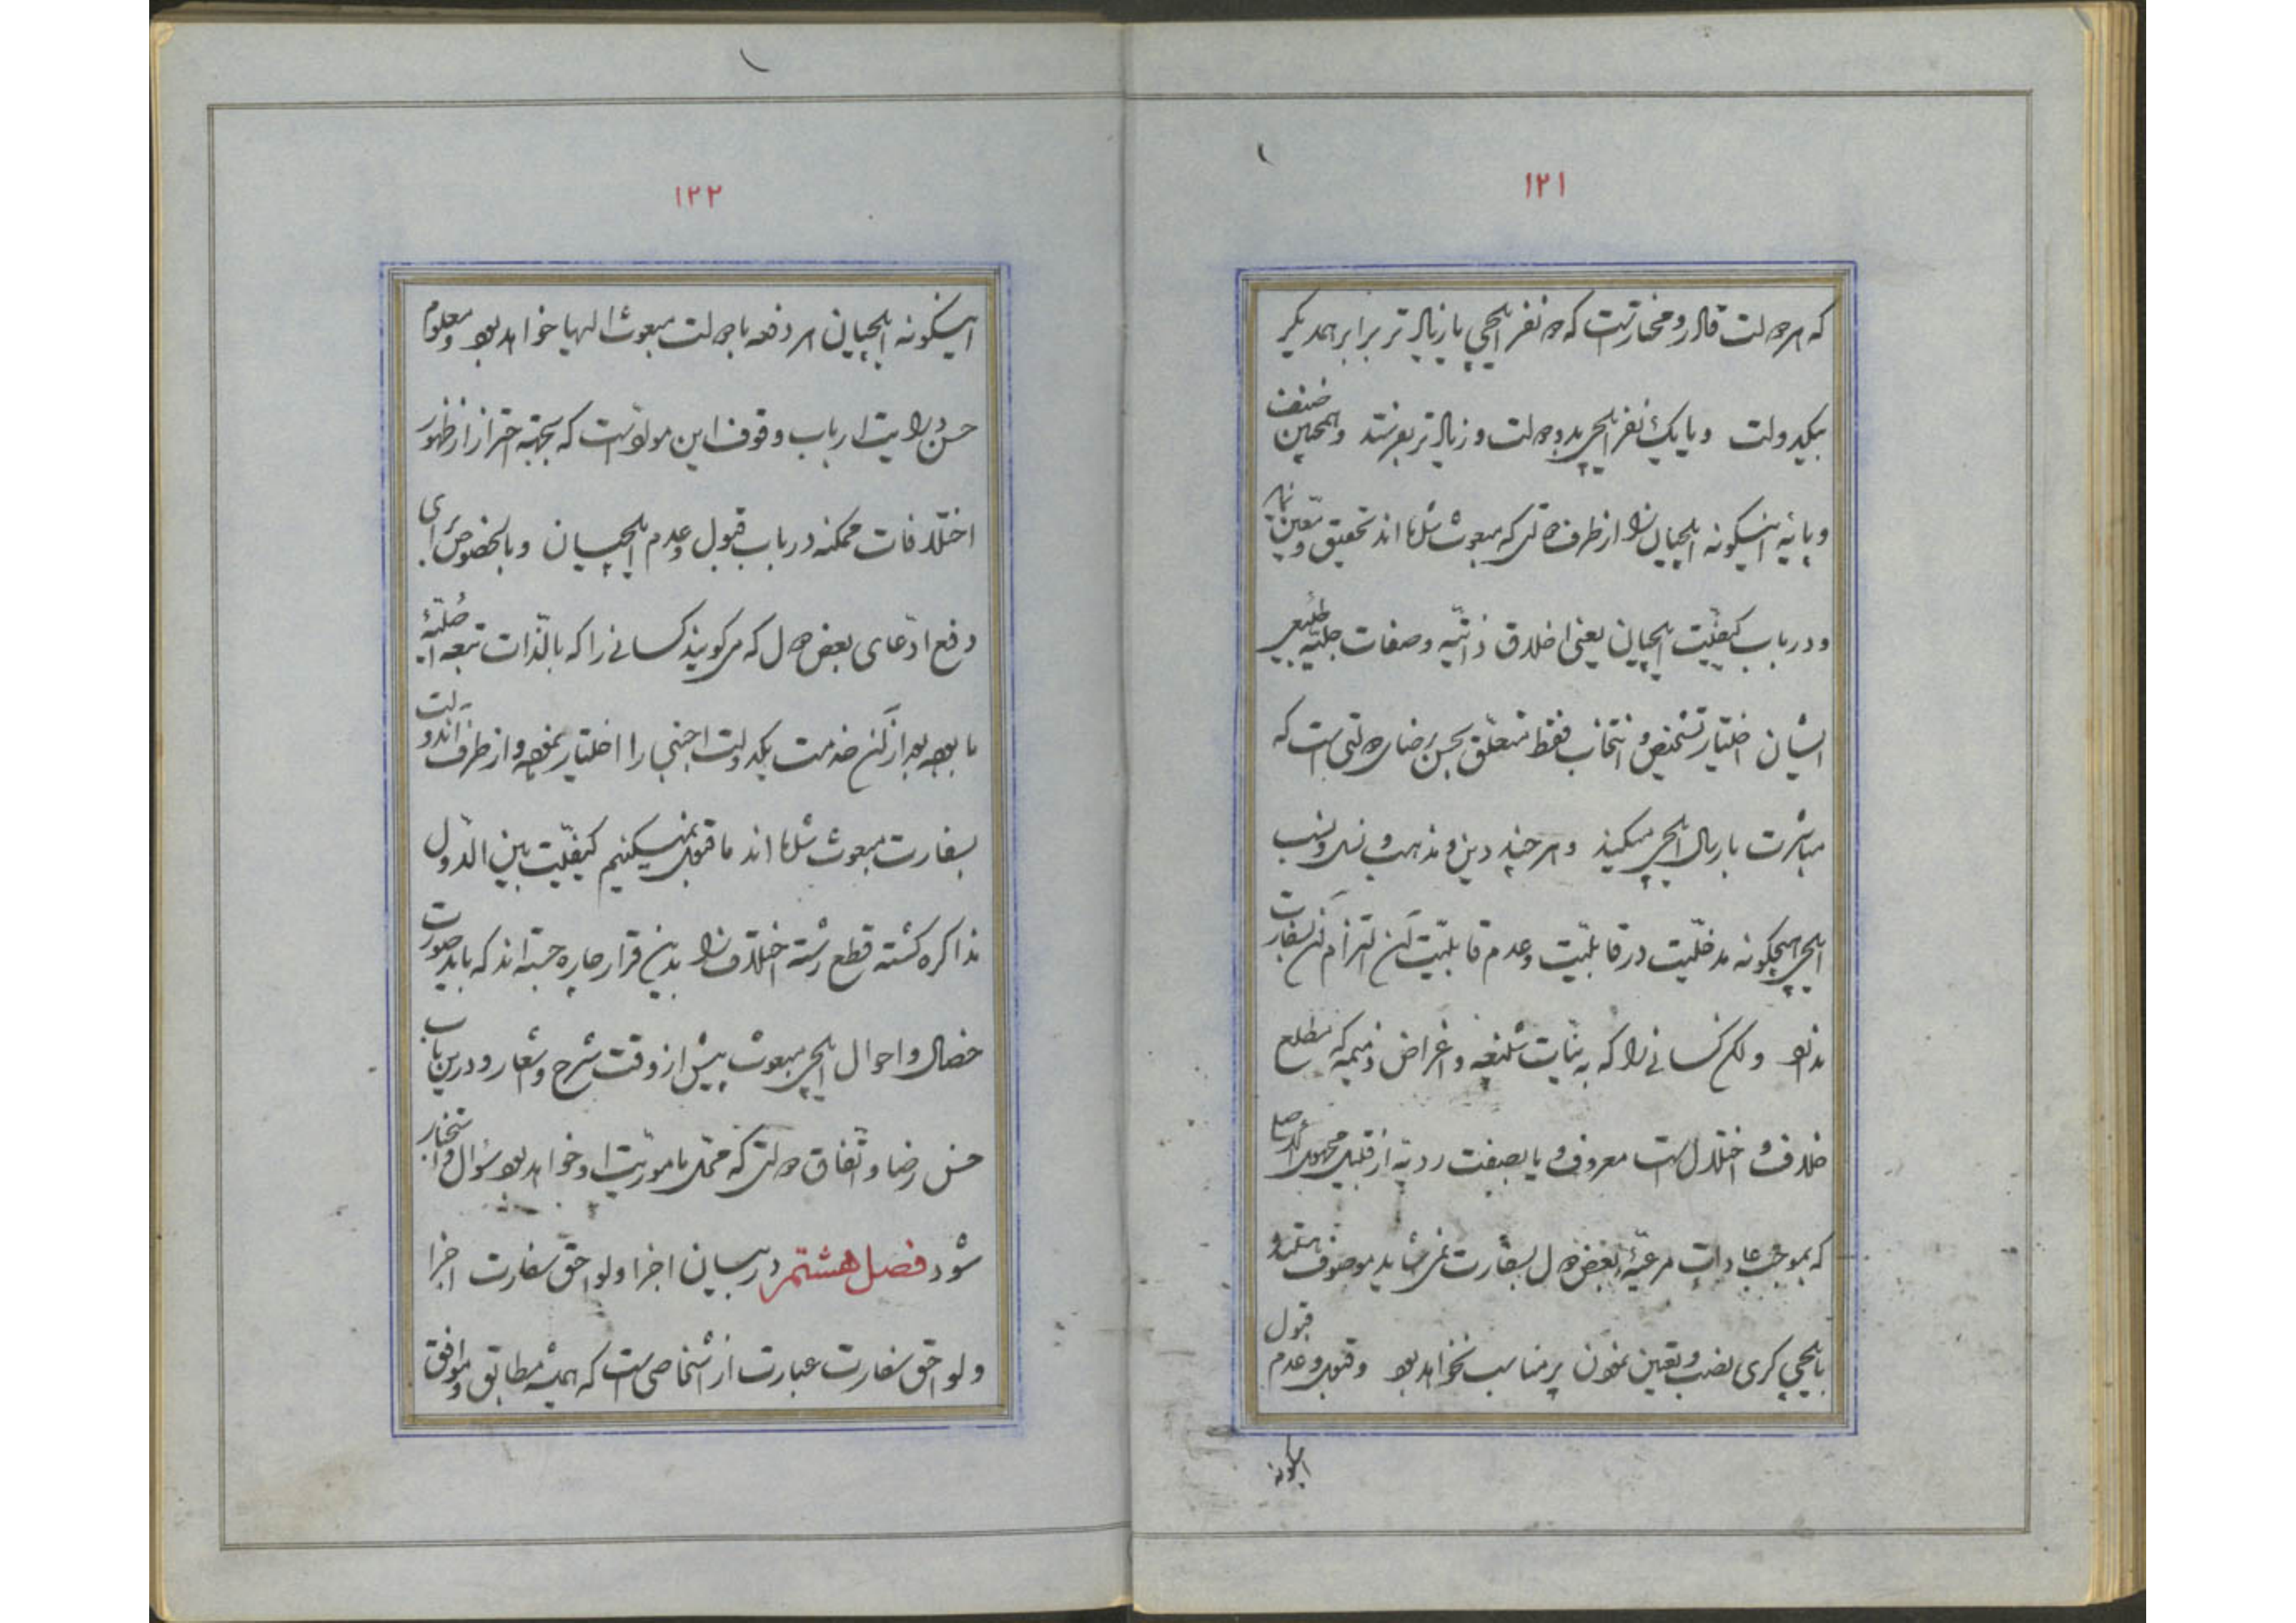 ۱۲۱
که هر دولت قادر و مختارست که دو نفر ایلچی یا زیاد تر برابر همدیگر
بیکدولت و یا یک نفر ایلچی بدو دولت و زیاد تر بفرستد و همچنین صنف
و پایهٔ اینگونه ایلچیان را از طرف دولتی که مبعوث شده اند تحقیق و تعیین نماید
و در باب کیفیّت ایلچیان یعنی اخلاق ذاتیّه و صفات جبلّیّه طبیعی
ایشان اختیار تشخیص و انتخاب فقط متعلّق بحسن رضای دولتی است که
مباشرت بارسال ایلچی میکند و هر چند دین و مذهب و نسل و نسب
ایلچی هیچگونه مدخلیّت در قابلیّت و عدم قابلیّت آن التزام آن سفارت
ندارد و لکن کسانی را که به نیّات شنیعه و اغراض ذمیمه که مطلع
خلاف و اختلال است معروف و یا بصفت ردیّه از قبیل مجهول الاصل
که بموجب عادات مرعیّهٔ بعض دول بسفارت نمی شاید موصوف هستند
بایلچی کری نصب و تعیین نمودن پر مناسب نخواهد بود و قبول و عدم قبول
اینگونه
۱۲۲
اینگونه ایلچیان هر دفعه با دولت مبعوث الیها خواهد بود و معلوم
حسن درایت ارباب وقوف این مواد است که بجهة احتراز از ظهور
اختلافات ممکنه در باب قبول و عدم ایلچیان و بالخصوص برای
دفع ادّعای بعض دول که میگویند کسانی را که بالذّات تبعه اصلیّهٔ
ما بوده بعد از آن خدمت یکدولت اجنبی را اختیار نموده و از طرف آندولت
بسفارت مبعوث شده اند ما قبول نمیکنیم کیفیّت بین الدّول
مذاکره کشته قطع رشته اختلاف را بدین قرار چاره جسته اند که باید صورت
خصال و احوال ایلچی مبعوث پیش از وقت شرح و اشعار و درین باب
حسن رضا و اتّفاق دولتی که محلّ مأموریّت او خواهد بود سؤال و استخبار
شود فصل هشتم در بیان اجزا و لواحق سفارت اجزا
و لواحق سفارت عبارت از اشخاصی است که همیشه مطابق و موافق